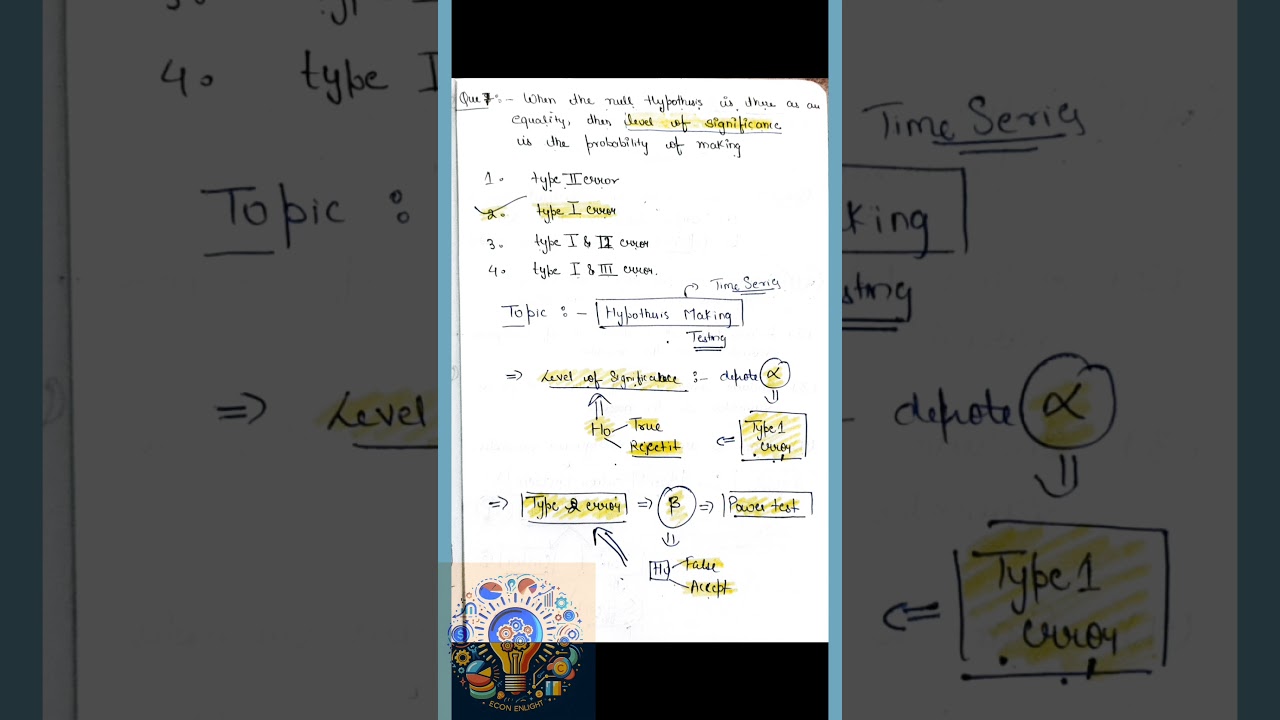 Que 7:- When the null Hypothesis is there as an
equality, then level of significance
is the probability of making
1. type II error
2. type I error
3. type I & II error
4. type I & III error.
Time Series
Topic :- Hypothesis Making
Testing
=> Level of Significance :- denote α
Ho True
Reject it
Type 1
error
=> Type 2 error => β => Power test
Ho False
Accept
ECON ENLIGHT
4. type I
Topic :
=> Level
Time Series
king
sting
denote α
Type 1
error